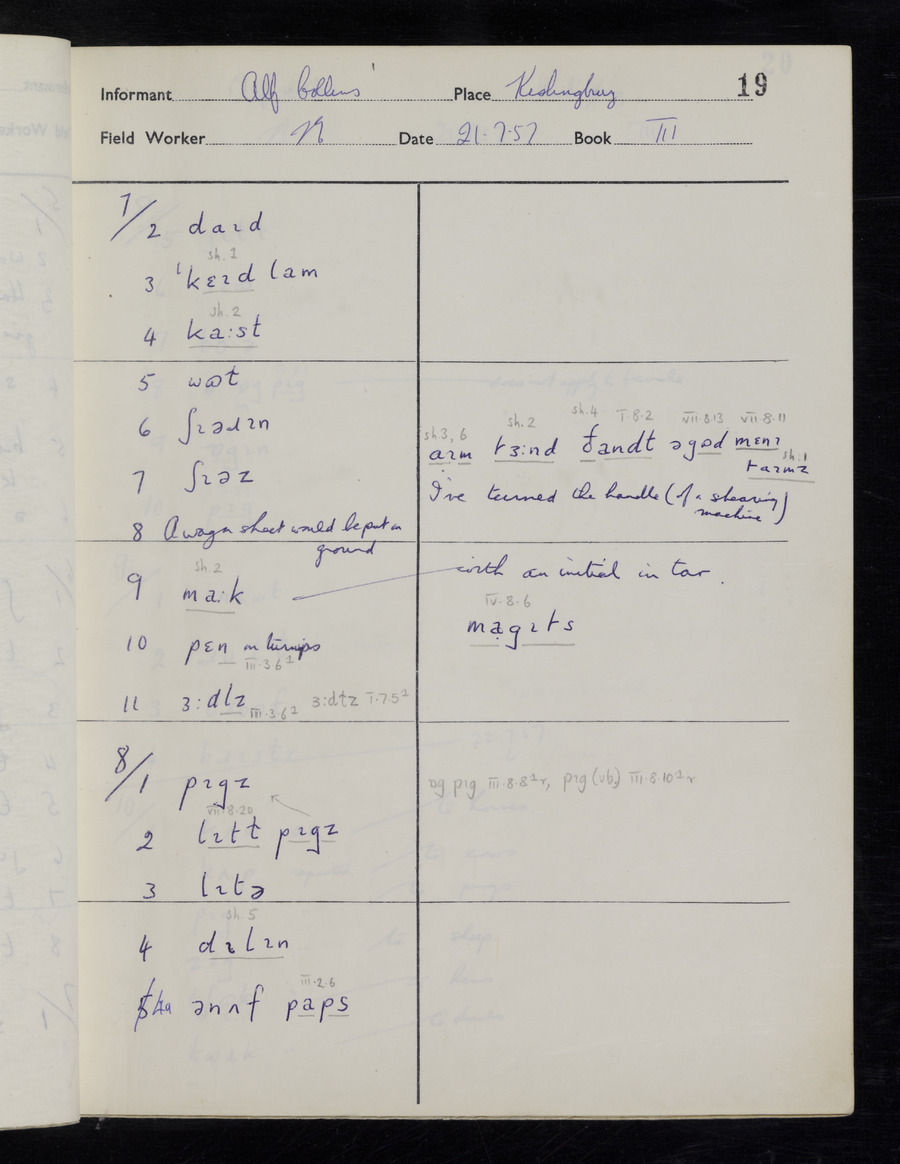 19
Informant Alf Collins Place Kislingbury
Field Worker Date 21·7·57 Book III
7/2 daɪd
sh. 1
3 ˈkɛɪd lam
sh. 2
4 ka:st
5 wɒt
6 ʃɪəɹɪn
7 ʃɪəz
8 A wagon sheet would be put on
ground
sh. 2
9 ma:k
10 pɛn on turnips
III·3·6¹
11 ɜ:dlz III·3·6¹ ɜ:dtz I·7·5¹
sh 3, 6 sh. 2 sh. 4 I·8·2 VII·8·13 VII·8·11
aɪm tɜ:nd andt əgɒd mɛnɪ
sh. 1
taɪmz
I've turned the handle (of a shearing
machine)
with an initial in tar.
IV·8·6
magɪts
8/1 pɪgz
VII·8·20
2 lɪtt pɪgz
3 lɪtə
sh. 5
4 dɪlɪn
III·2·6
4a ənʌf paps
ɒg pɪg III·8·8¹r, pɪg (vb.) III·8·10¹r